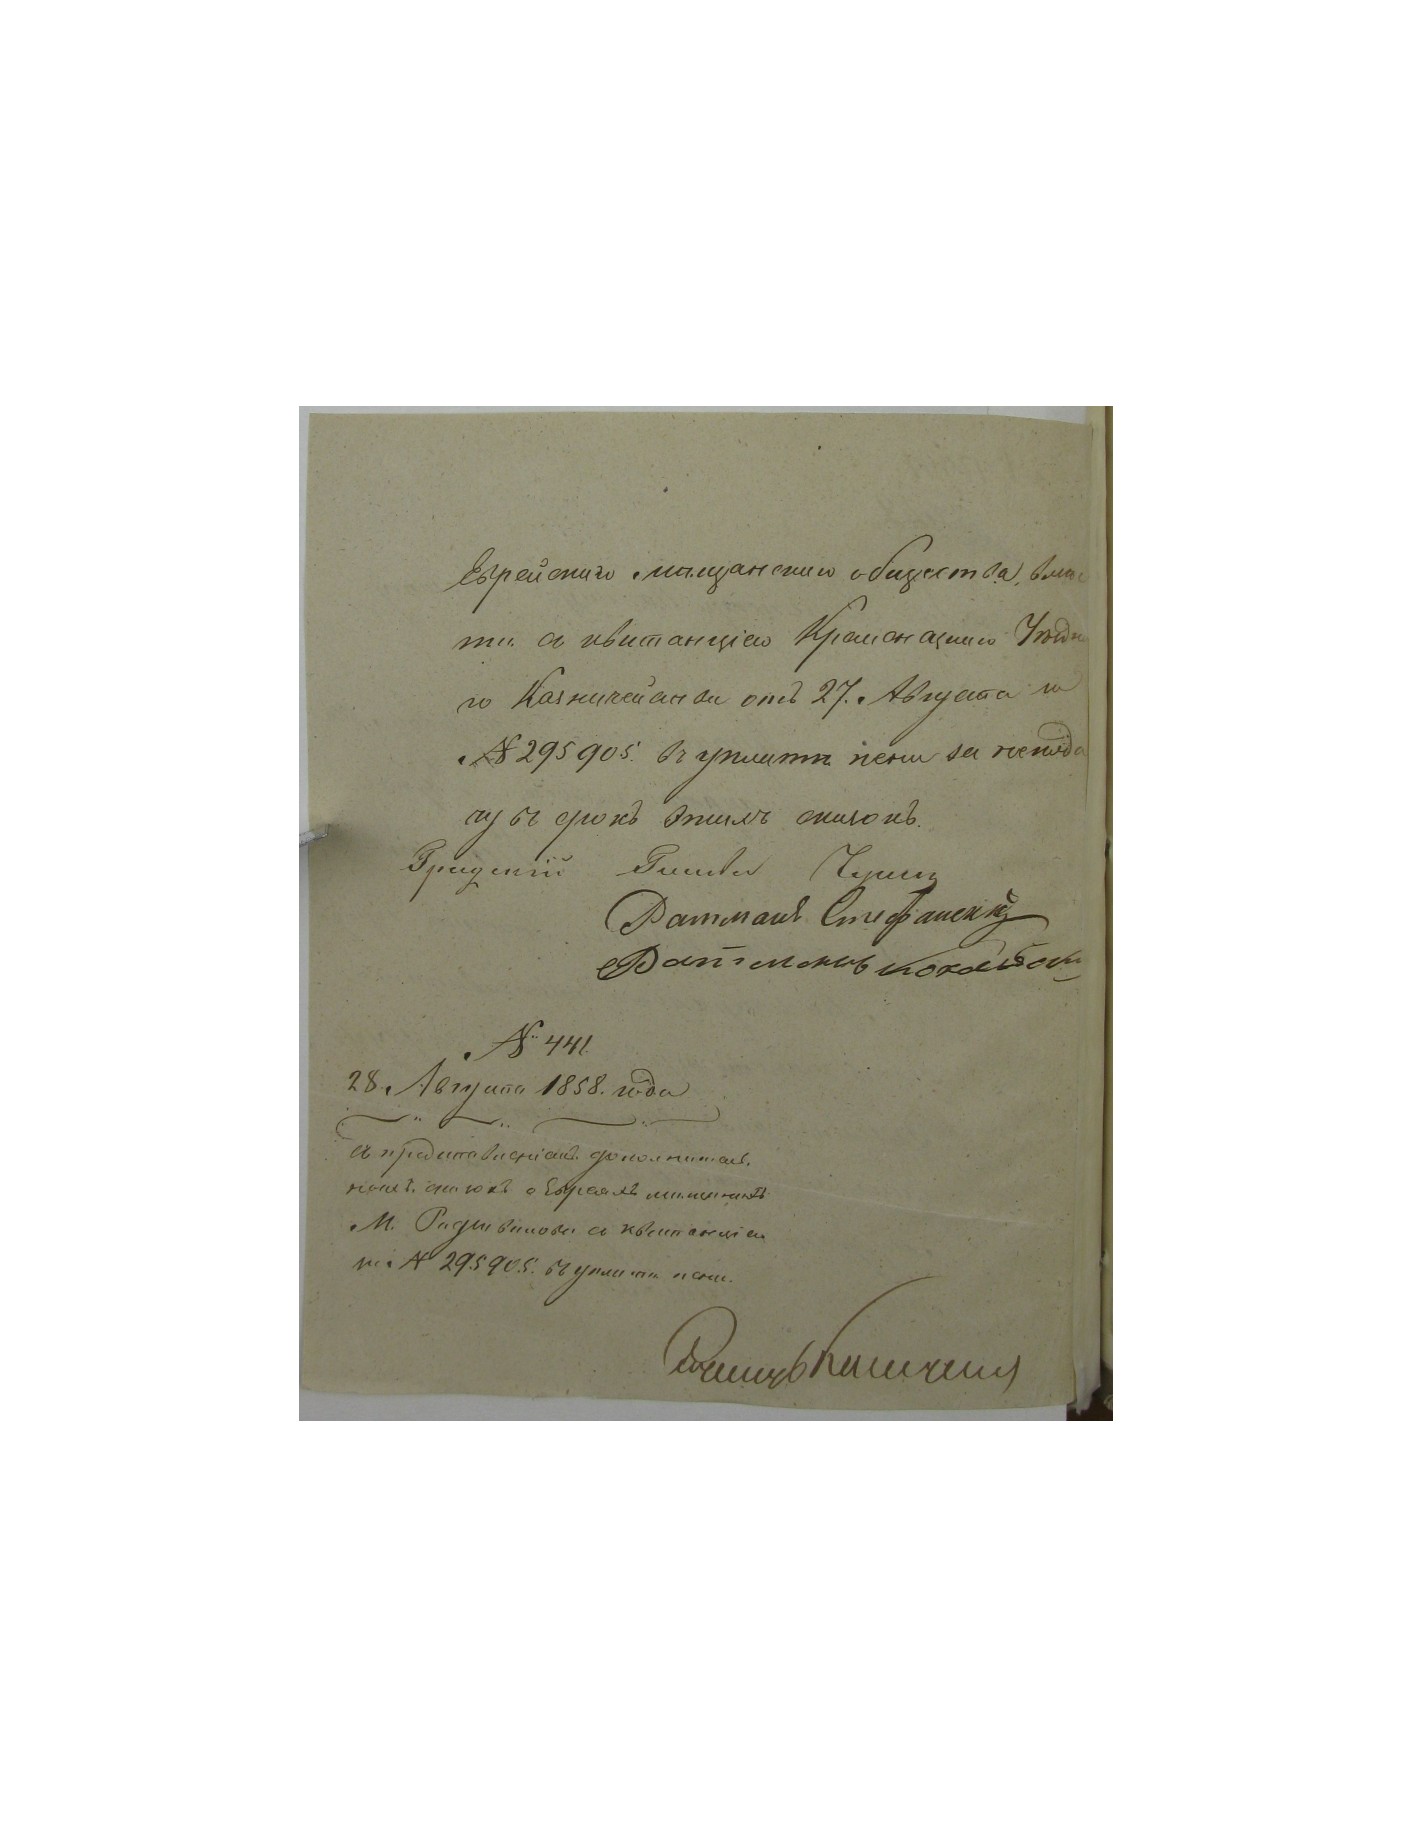 Еврейскаго мѣщанскаго общества, вмѣс
тѣ съ квитанціею Кременецкаго Уѣздна
го Казначейства отъ 27. Августа за
№ 295905. въ уплатѣ пени за непода
чу въ срокъ этихъ сказокъ.
Градскій Глава
Ратманъ Стефанскій
Ратманъ
№ 441
28. Августа 1858. года
съ представленіемъ дополнитель
ныхъ сказокъ о Евреяхъ мѣщанахъ
М. Радзивилова съ квитанціею
за № 295905. въ уплатѣ пени.